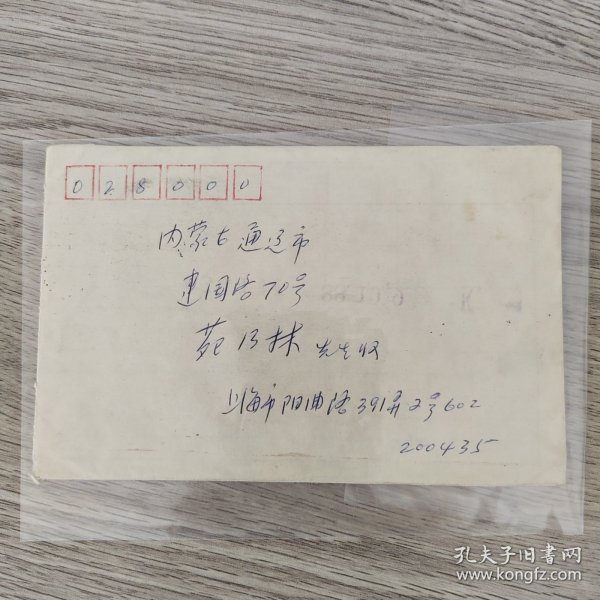 028000
内蒙古通辽市
建国路70号
苑乃林 先生收
上海市阳曲路391弄2号602
200435
孔夫子旧书网
www.kongfz.com